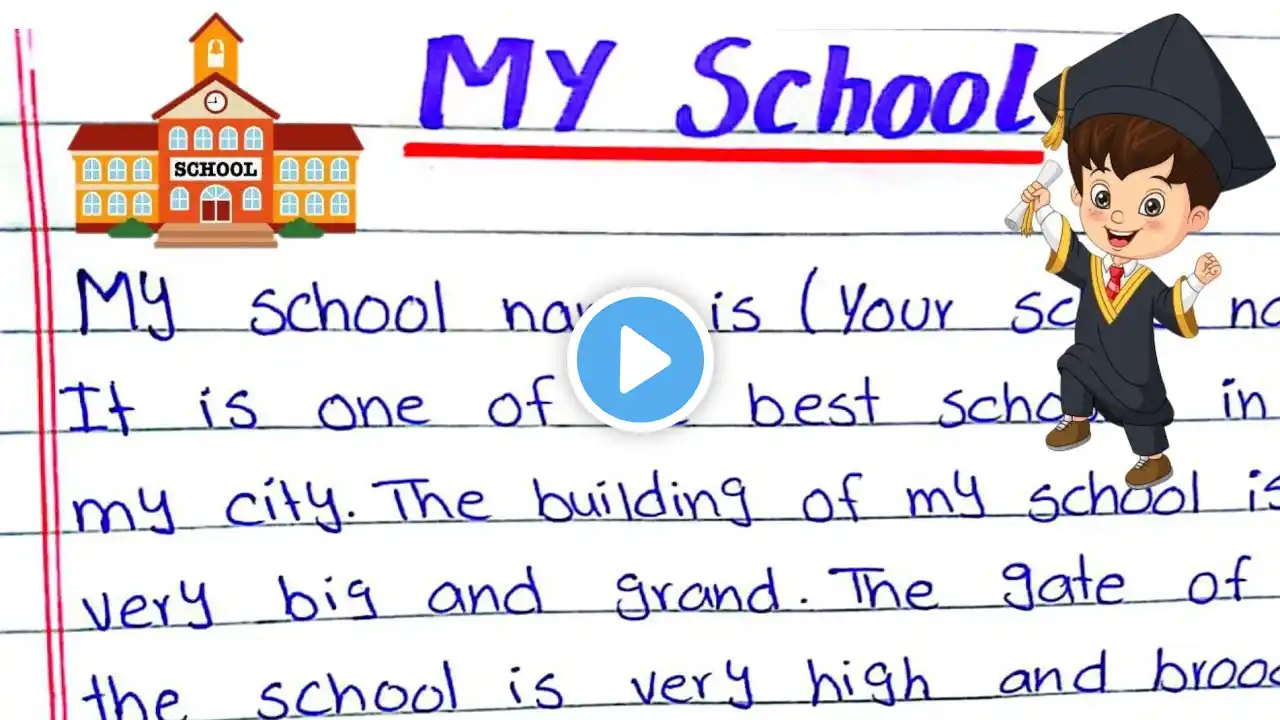 MY School
SCHOOL
My school is (Your
It is one of best in
my city. The building of my school
very big and grand. The gate of
the school is very high and